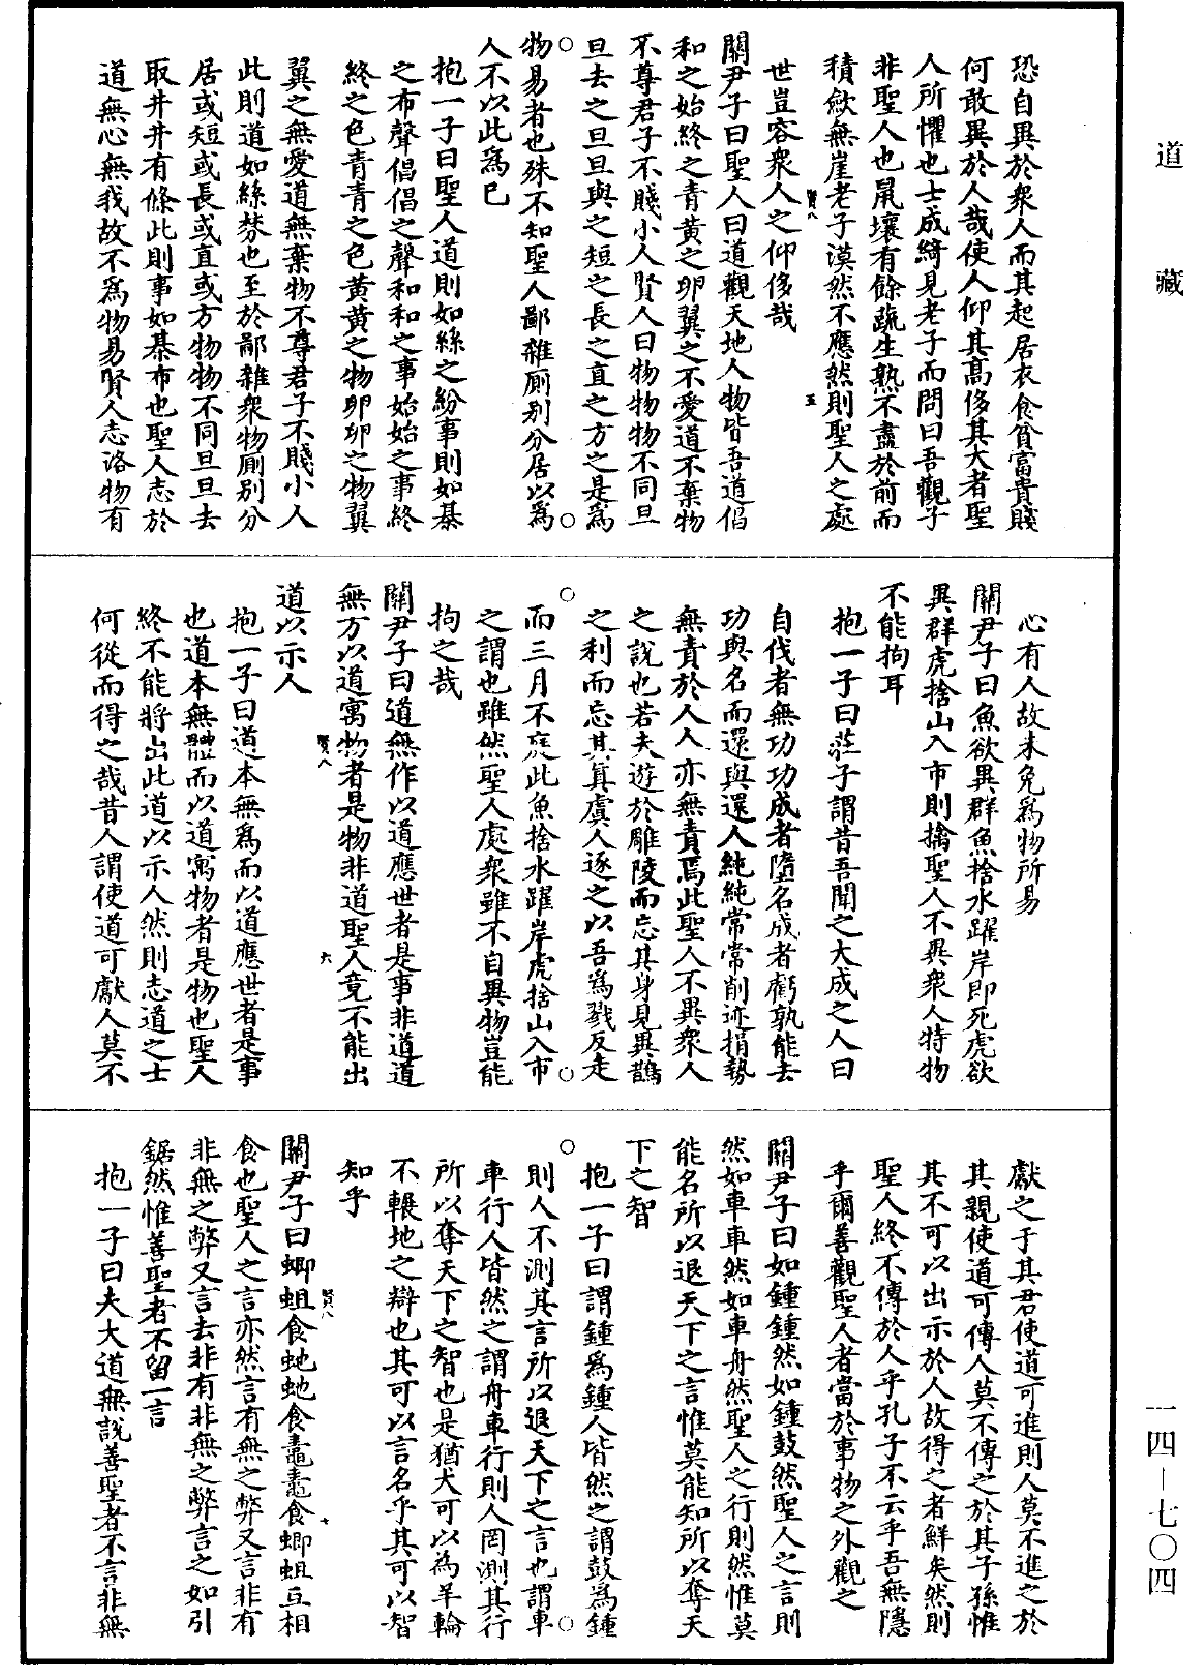 道藏
恐自異於衆人而其起居衣食貧富貴賤
何敢異於人哉使人仰其高侈其大者聖
人所懼也士成綺見老子而問曰吾觀子
非聖人也鼠壤有餘蔬生熟不盡於前而
積斂無崖老子漠然不應然則聖人之處
世豈容衆人之仰侈哉
賢八
五
關尹子曰聖人曰道觀天地人物皆吾道倡
和之始終之青黄之卵翼之不愛道不棄物
不尊君子不賤小人賢人曰物物物不同旦
旦去之旦旦與之短之長之直之方之是爲
物易者也殊不知聖人鄙雜厠别分居以爲
人不以此爲己
抱一子曰聖人道則如絲之紛事則如棊
之布聲倡倡之聲和和之事始始之事終
終之色青青之色黄黄之物卵卵之物翼
翼之無愛道無棄物不尊君子不賤小人
此則道如絲棼也至於鄙雜衆物厠别分
居或短或長或直或方物物不同旦旦去
取井井有條此則事如棊布也聖人志於
道無心無我故不爲物易賢人志洛物有
心有人故未免爲物所易
關尹子曰魚欲異群魚捨水躍岸即死虎欲
異群虎捨山入市則擒聖人不異衆人特物
不能拘耳
抱一子曰莊子謂昔吾聞之大成之人曰
自伐者無功功成者墮名成者虧孰能去
功與名而還與還人純純常常削迹捐勢
無責於人人亦無責焉此聖人不異衆人
之說也若夫遊於雕陵而忘其身見異鵲
之利而忘其真虞人逐之以吾爲戮反走
而三月不庭此魚捨水躍岸虎捨山入市
之謂也雖然聖人處衆雖不自異物豈能
拘之哉
關尹子曰道無作以道應世者是事非道道
無方以道寓物者是物非道聖人竟不能出
賢八
六
道以示人
抱一子曰道本無爲而以道應世者是事
也道本無體而以道寓物者是物也聖人
終不能將出此道以示人然則志道之士
何從而得之哉昔人謂使道可獻人莫不
獻之于其君使道可進則人莫不進之於
其親使道可傳人莫不傳之於其子孫惟
其不可以出示於人故得之者鮮矣然則
聖人終不傳於人乎孔子不云乎吾無隱
乎爾善觀聖人者當於事物之外觀之
關尹子曰如鍾鍾然如鍾鼓然聖人之言則
然如車車然如車舟然聖人之行則然惟莫
能名所以退天下之言惟莫能知所以奪天
下之智
抱一子曰謂鍾爲鍾人皆然之謂鼓爲鍾
則人不測其言所以退天下之言也謂車
車行人皆然之謂舟車行則人罔測其行
所以奪天下之智也是猶犬可以為羊輪
不輾地之辯也其可以言名乎其可以智
知乎
關尹子曰蝍蛆食虵虵食鼃鼃食蝍蛆互相
賢八
七
食也聖人之言亦然言有無之弊又言非有
非無之弊又言去非有非無之弊言之如引
鋸然惟善聖者不留一言
抱一子曰夫大道無說善聖者不言非無
一四—七〇四